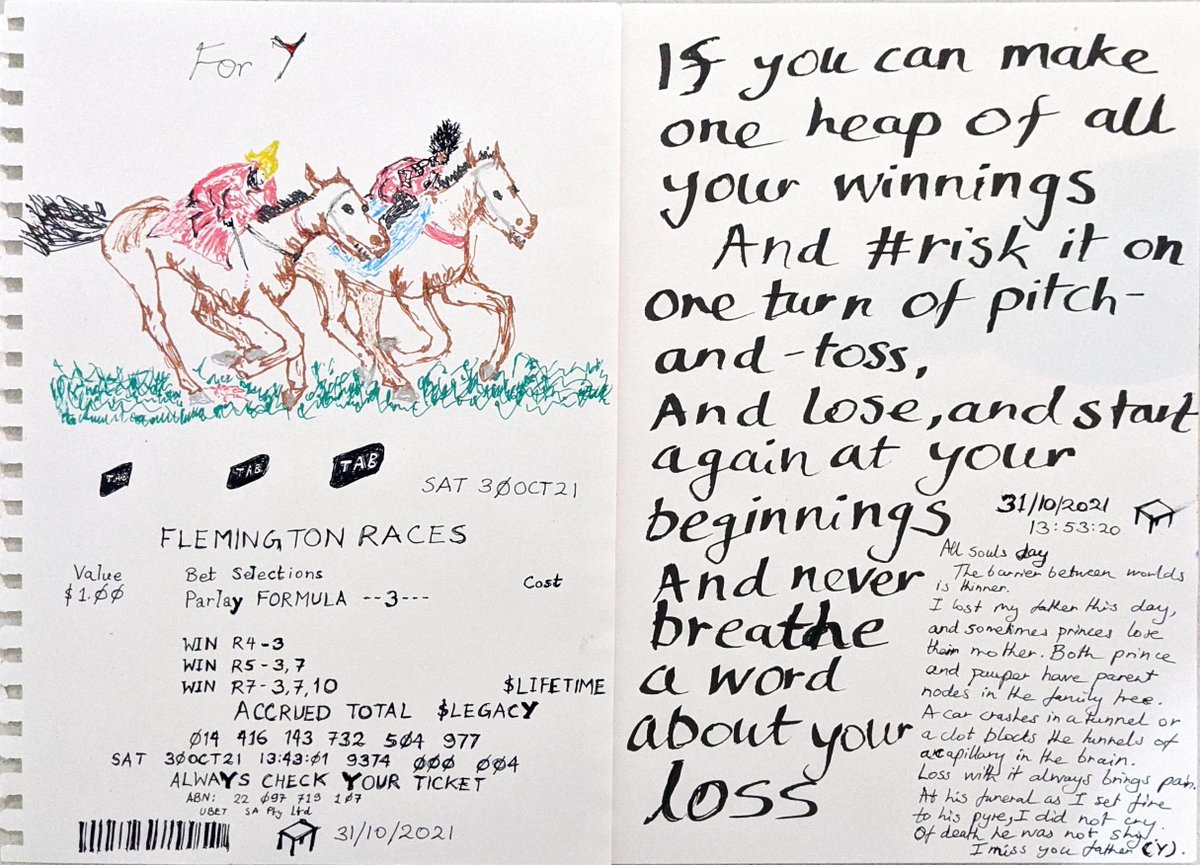 For Y
TAB
TAB
TAB
SAT 30OCT21
FLEMINGTON RACES
Value
$1.00
Bet Selections
Cost
Parlay FORMULA --3---
WIN R4-3
WIN R5-3,7
WIN R7-3,7,10
$LIFETIME
ACCRUED TOTAL $LEGACY
014 416 143 732 504 977
SAT 30OCT21 13:43:01 9374 000 004
ALWAYS CHECK YOUR TICKET
ABN: 22 097 719 107
UBET SA Pty Ltd
31/10/2021
If you can make
one heap of all
your winnings
And #risk it on
one turn of pitch-
and-toss,
And lose, and start
again at your
beginnings
And never
breathe
a word
about your
loss
31/10/2021
13:53:20
All Souls day
The barrier between worlds
is thinner.
I lost my father this day,
and sometimes princes lose
their mother. Both prince
and pauper have parent
nodes in the family tree.
A car crashes in a tunnel or
a clot blocks the tunnels of
a capillary in the brain.
Loss with it always brings pain.
At his funeral as I set fire
to his pyre, I did not cry.
Of death he was not shy.
I miss you father (Y).